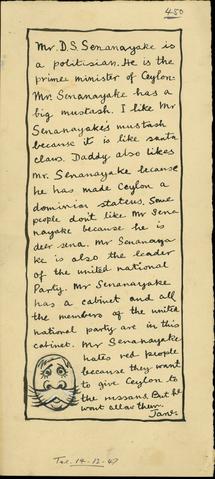 450
Mr. D.S. Senanayake is
a politisian. He is the
primee minister of Ceylon.
Mr. Senanayake has a
big mustash. I like Mr
Senanayake's mustash
because it is like santa
claus. Daddy also likes
Mr. Senanayake because
he has made Ceylon a
dominian stateus. Some
people don't like Mr Sena
nayake because he is
deer sena. Mr Senanaya
ke is also the leader
of the united national
Party. Mr Senanayake
has a cabinet and all
the members of the united
national party are in this
cabinet. Mr Senanayake
hates red people
because they want
to give Ceylon to
the russans. But he
wont allow them.
Tar. 14-12-47